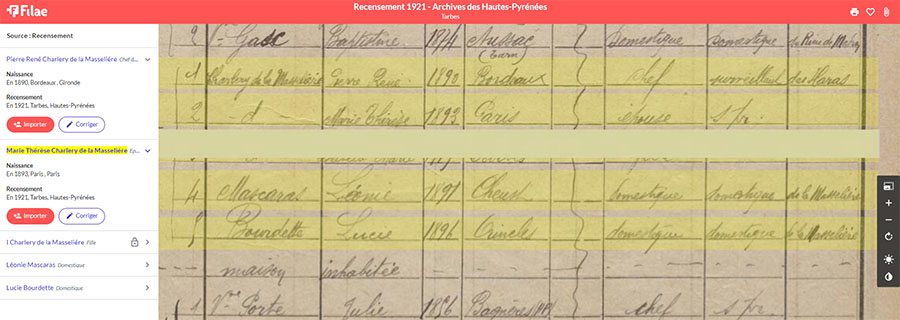 Filae
Recensement 1921 - Archives des Hautes-Pyrénées
Tarbes
Source : Recensement
Pierre René Charlery de la Masselière Chef d...
Naissance
En 1890, Bordeaux, Gironde
Recensement
En 1921, Tarbes, Hautes-Pyrénées
Importer Corriger
Marie Thérèse Charlery de la Masselière Ep...
Naissance
En 1893, Paris, Paris
Recensement
En 1921, Tarbes, Hautes-Pyrénées
Importer Corriger
I Charlery de la Masselière Fille
Léonie Mascaras Domestique
Lucie Bourdette Domestique
2 Vve Gass Baptistine 1874 Domestique Domestique
(Tarn)
1 Charlery de la Masselière Pierre René 1890 Bordeaux chef surveillant des Haras
2 d Marie Thérèse 1893 Paris épouse s.pr.
4 Mascaras Léonie 1891 domestique domestique de la Masselière
5 Bourdette Lucie 1896 domestique domestique de la Masselière
maison inhabitée
1 Vve Porte Julie 1856 Bagnères chef s.pr.